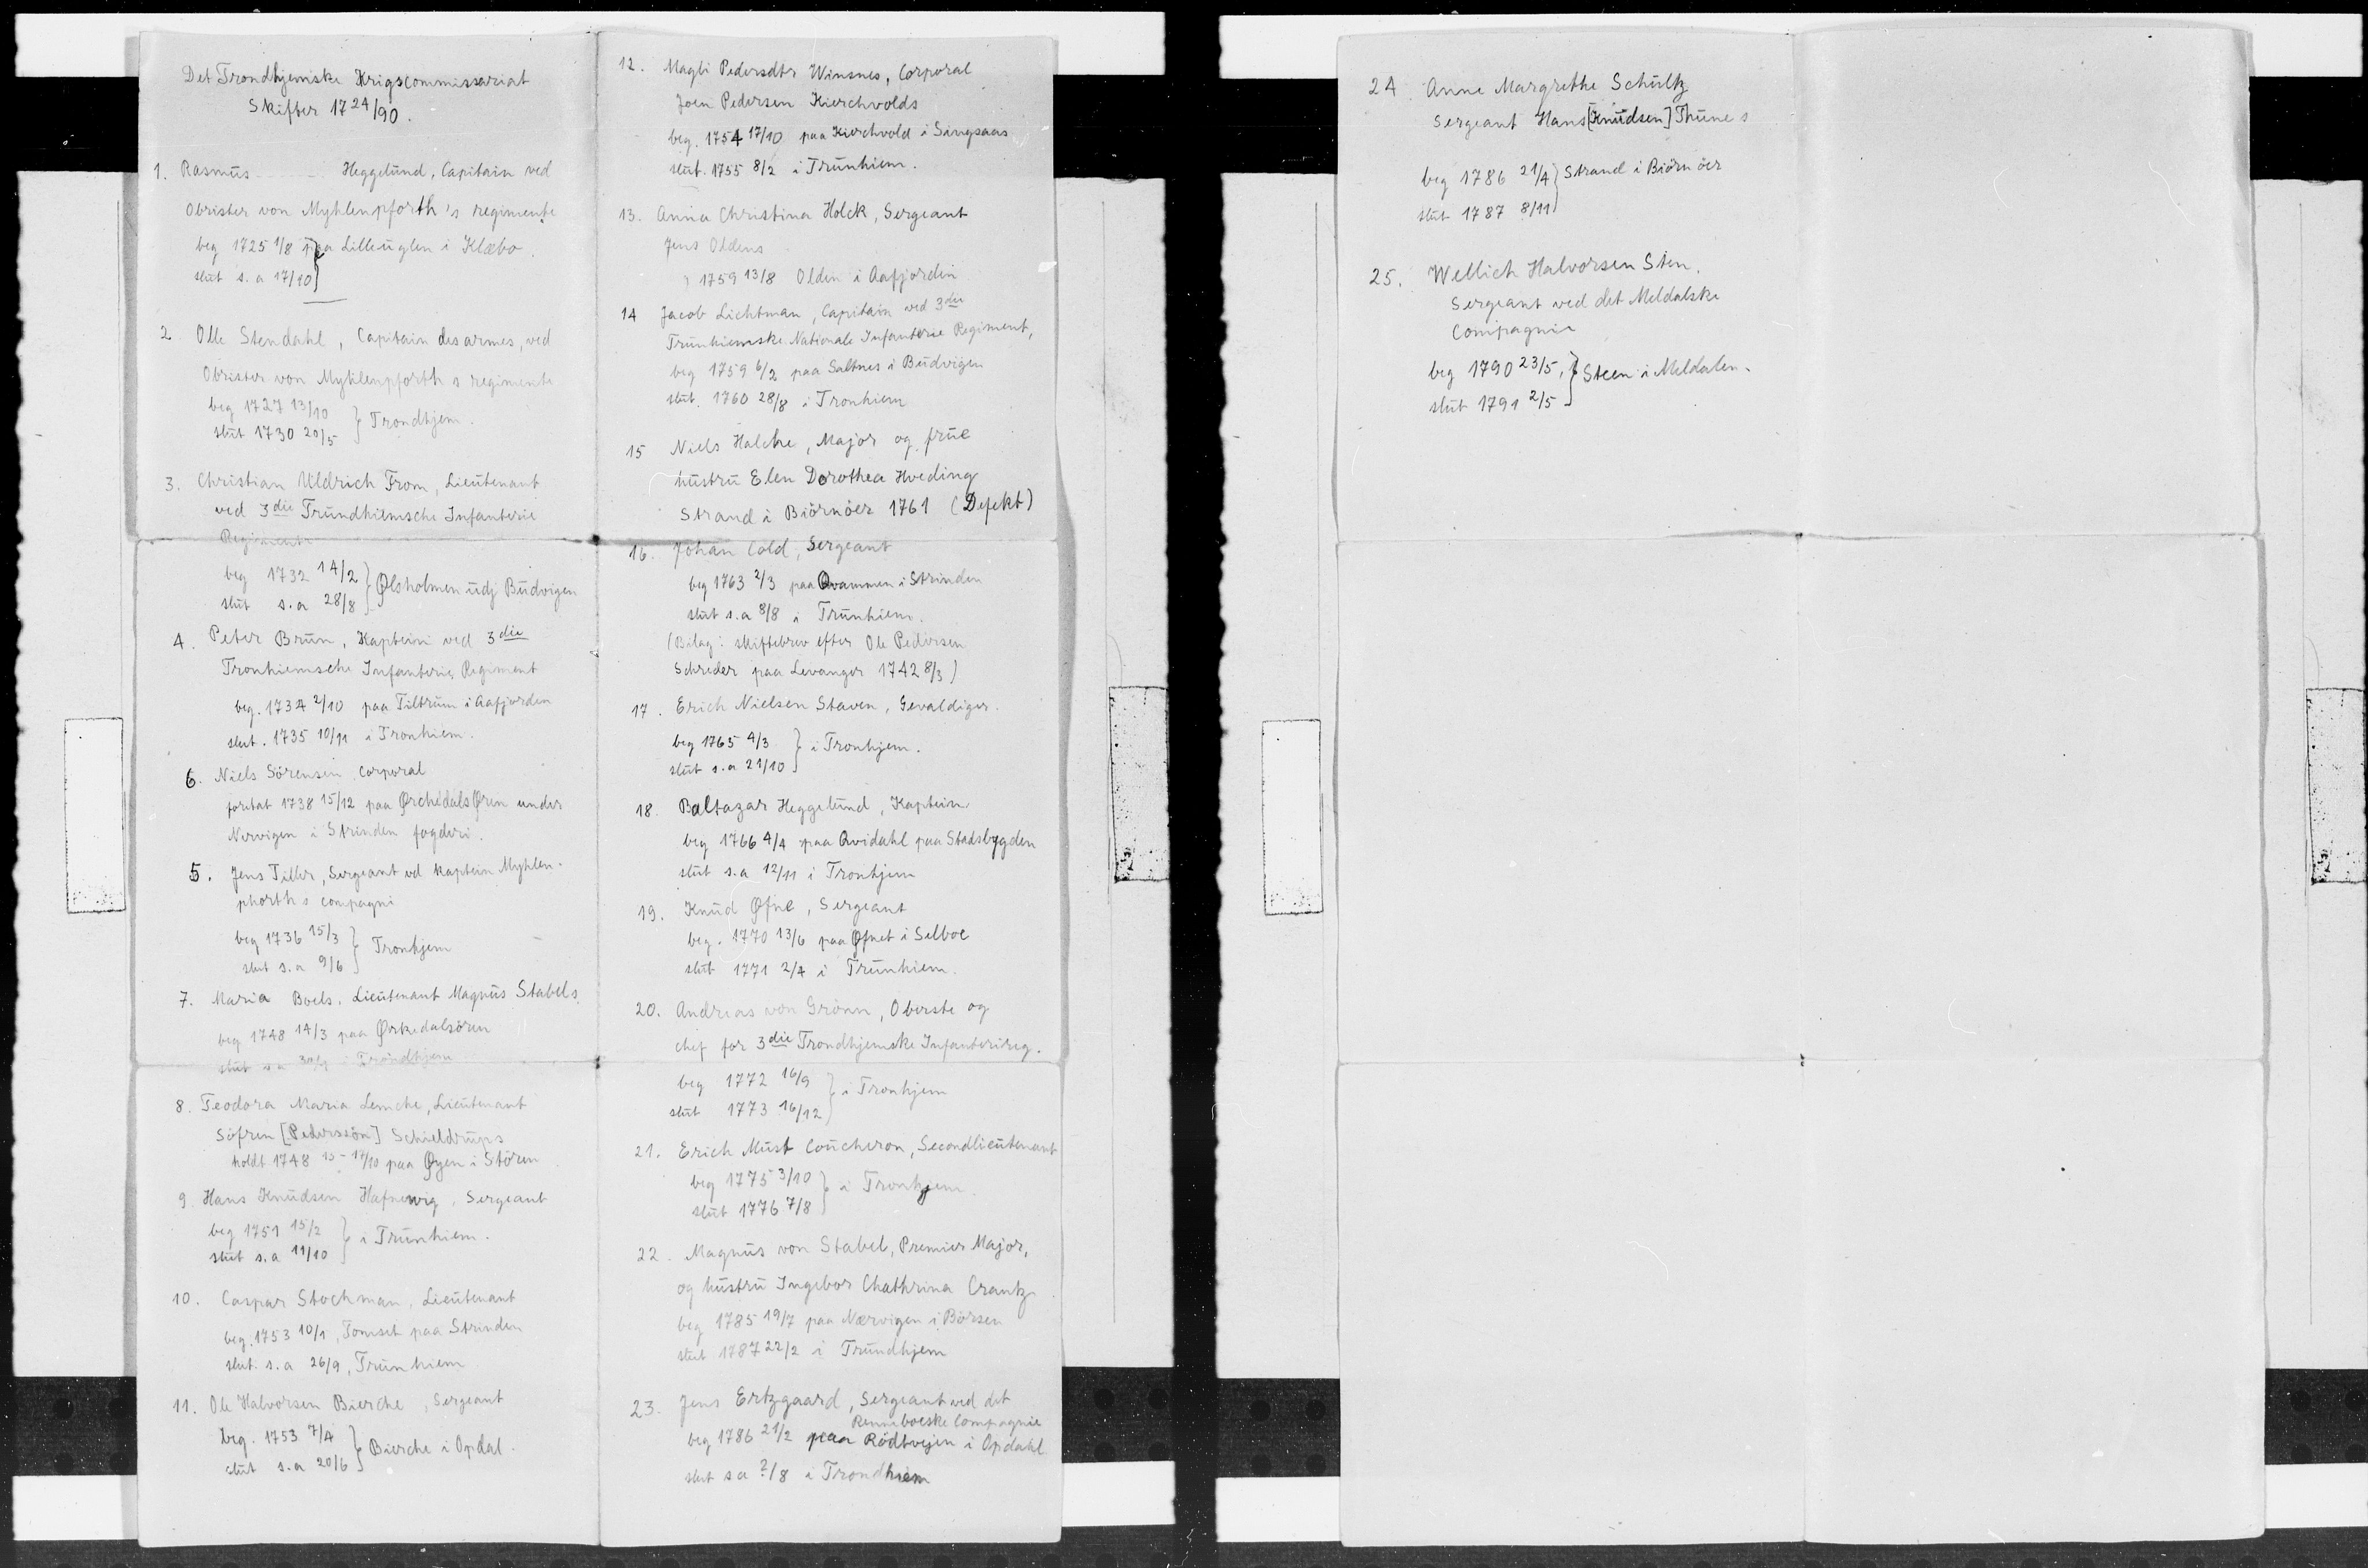 Det Trondhjemske Krigscommissariat
Skifter 1724/90.
1. Rasmus ........ Heggelund, Capitain ved
Obrister von Myhlenpforth's regimente
beg 1725 1/8 paa Lilleuglen i Klæbo.
slut s.a 17/10}
2. Olle Stendahl, Capitain des armes, ved
Obrister von Myhlenpforth s regimente
beg 1727 13/10
slut 1730 20/5 } Trondhjem.
3. Christian Uldrich From, Lieutenant
ved 3die Trundhiemsche Infanterie
Regimente
beg 1732 14/2 } Ølsholmen udj Budvigen
slut s.a 28/8
4. Peter Brun, Kaptein ved 3die
Tronhiemsche Infanterie Regiment
beg. 1734 2/10 paa Tiltrum i Aafjorden
slut. 1735 10/11 i Tronhiem.
6. Niels Sörensen Corporal
foretat 1738 15/12 paa Ørchedals Øren under
Nervigen i Strinden fogderi.
5. Jens Tiller, Sergeant ved Kaptein Myhlen-
phorth s compagni
beg 1736 15/3 } Tronhjem
slut s.a 9/6
7. Maria Boels, Lieutenant Magnus Stabels
beg 1748 14/3 paa Ørkedalsören
slut s a 30/9 i Trondhjem
8. Teodora Maria Lemche, Lieutenant
Söfren [Pederssön] Schieldrups
holdt 1748 15-17/10 paa Øyen i Stören
9. Hans Knudsen Hafnewig, Sergeant
beg 1751 15/2 } i Trunhiem.
slut s.a 11/10
10. Caspar Stochman, Lieutenant
beg. 1753 10/1, Tomset paa Strinden
slut. s.a 26/9, Trunhiem
11. Ole Halvorsen Bierche, Sergeant
beg. 1753 7/4 } Bierche i Opdal.
slut s.a 20/6
12. Magli Pedersdtr Winsnes, Corporal
Joen Pedersen Kierchvolds
beg. 1754 17/10 paa Kierchvold i Singsaas
slut. 1755 8/2 i Trunhiem.
13. Anna Christina Holck, Sergeant
Jens Oldens
1759 13/8 Olden i Aafjorden
14 Jacob Lichtman, Capitain ved 3die
Trunhiemske Nationale Infanterie Regiment,
beg 1759 6/2 paa Saltnes i Budvigen
slut. 1760 28/8 i Tronhiem
15 Niels Halche, Major og frue
hustru Elen Dorothea Hveding
Strand i Biörnöer 1761 (Defekt)
16. Johan Cold, Sergeant
beg 1763 2/3 paa Qvammen i Strinden
slut s.a 8/8 i Trunhiem.
(Bilag: skiftebrev efter Ole Pedersen
Schreder paa Levanger 1742 8/3)
17. Erich Nielsen Staven, Gevaldiger.
beg 1765 4/3 } i Tronhjem.
slut s.a 21/10
18. Baltazar Heggelund, Kaptein
beg 1766 4/4 paa Qvidahl paa Stadsbygden
slut s.a 12/11 i Tronhjem
19. Knud Øfne, Sergeant
beg. 1770 13/6 paa Øfnet i Selboe
slut 1771 2/4 i Trunhiem.
20. Andreas von Grönn, Oberste og
chef for 3die Trondhjemske Infanterireg.
beg 1772 16/9 } i Tronhjem
slut 1773 16/12
21. Erich Must Coucheron, Secondlieutenant
beg 1775 3/10 } i Tronhjem
slut 1776 7/8
22. Magnus von Stabel, Premier Major,
og hustru Ingebor Chathrina Crantz
beg 1785 19/7 paa Nærvigen i Börsen
slut 1787 22/2 i Trundhjem
23. Jens Ertzgaard, Sergeant ved det
Renneboeske Compagnie
beg 1786 21/2 paa Rödtvejen i Opdahl
slut s a ?/8 i Trondhiem
24 Anne Margrethe Schultz
Sergeant Hans [Knudsen] Thune s
beg 1786 21/4 } Strand i Biörnöer
slut 1787 8/11
25. Wellich Halvorsen Sten,
Sergeant ved det Meldalske
Compagnie
beg 1790 23/5, } Steen i Meldalen.
slut 1791 2/5